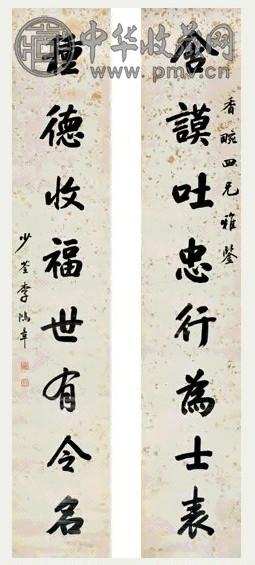 中华收藏网
www.pmv.cn
香畹四兄雅鑒
含謨吐忠行為士表
種德收福世有令名
少荃李鴻章